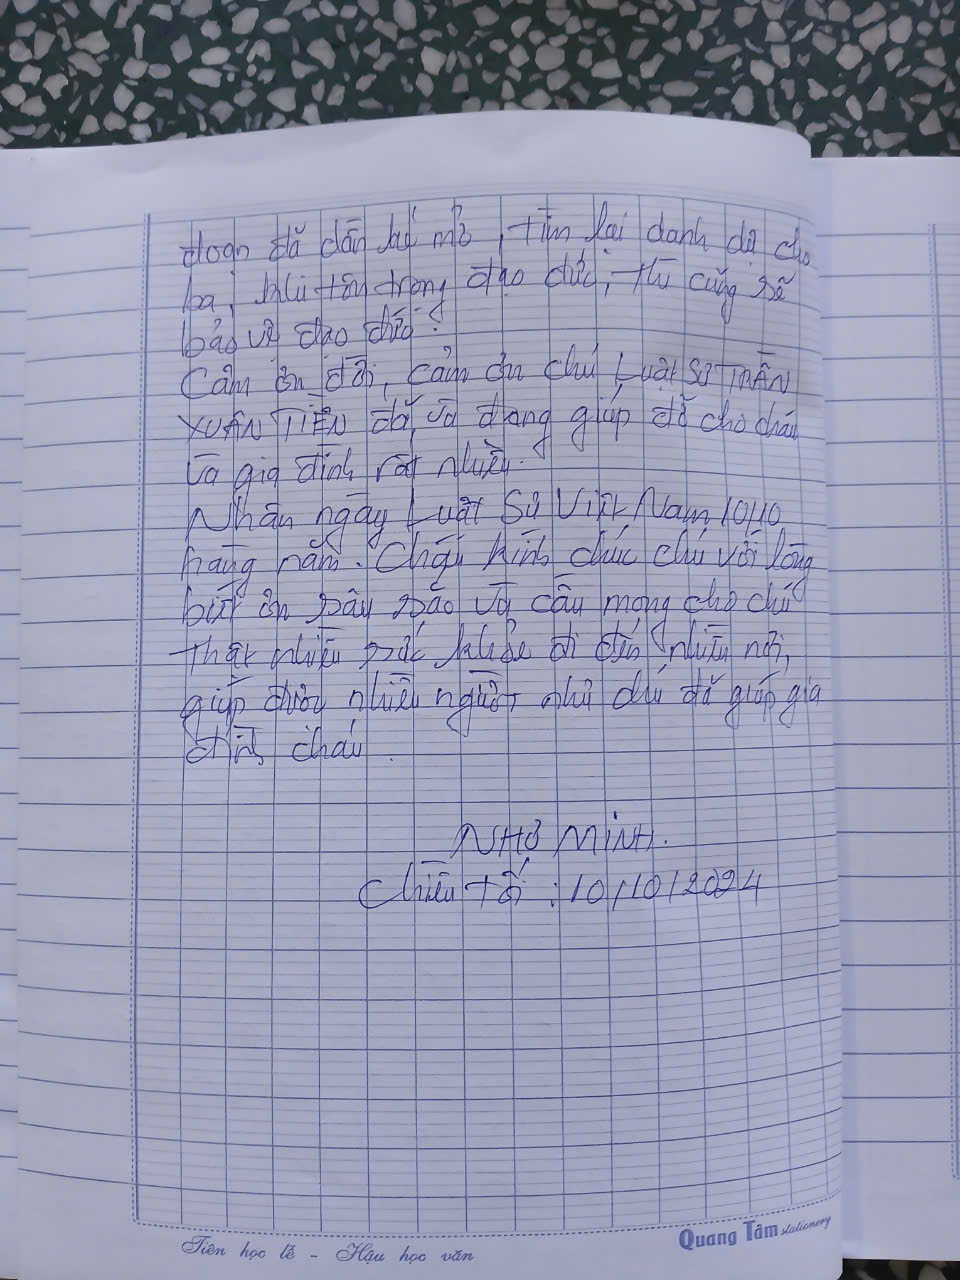 đoạn đã dần hé mở, tìm lại danh dự cho
ba, khi tôn trọng đạo đức, thì cũng sẽ
bảo vệ đạo đức!
Cảm ơn đời, cảm ơn chú Luật Sư TRẦN
XUÂN TIỀN đã, và đang giúp đỡ cho cháu
và gia đình rất nhiều.
Nhân ngày Luật Sư Việt Nam 10/10
hàng năm. Cháu kính chúc chú với lòng
biết ơn sâu sắc và cầu mong cho chú
thật nhiều sức khỏe đi đến nhiều nơi,
giúp được nhiều người như chú đã giúp gia
đình cháu.
NHỰ MINH.
Chiều tối : 10/10/2024
Tiên học lễ - Hậu học văn
Quang Tâm stationery